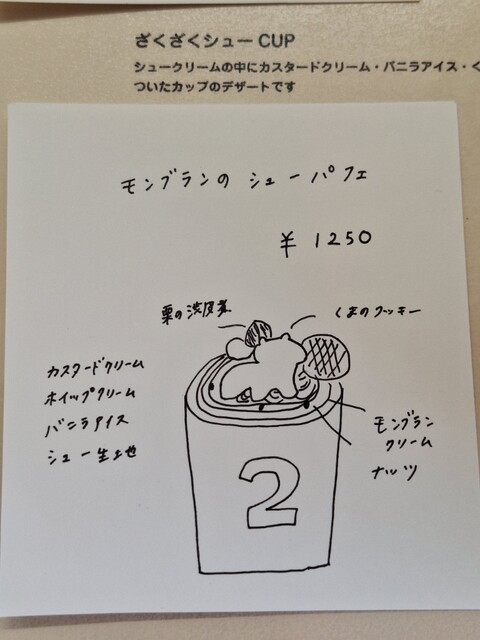 ざくざくシュー CUP
シュークリームの中にカスタードクリーム・バニラアイス・く
ついたカップのデザートです
モンブランの シュー パフェ
¥ 1250
栗の渋皮煮
くまのクッキー
カスタードクリーム
ホイップクリーム
バニラアイス
シュー生地
モンブラン
クリーム
ナッツ
2